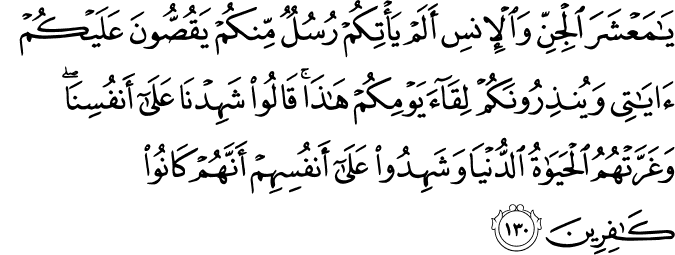 يَـٰمَعْشَرَ ٱلْجِنِّ وَٱلْإِنسِ أَلَمْ يَأْتِكُمْ رُسُلٌ مِّنكُمْ يَقُصُّونَ عَلَيْكُمْ
ءَايَـٰتِى وَيُنذِرُونَكُمْ لِقَآءَ يَوْمِكُمْ هَـٰذَا ۚ قَالُوا۟ شَهِدْنَا عَلَىٰٓ أَنفُسِنَا ۖ
وَغَرَّتْهُمُ ٱلْحَيَوٰةُ ٱلدُّنْيَا وَشَهِدُوا۟ عَلَىٰٓ أَنفُسِهِمْ أَنَّهُمْ كَانُوا۟
كَـٰفِرِينَ ١٣٠